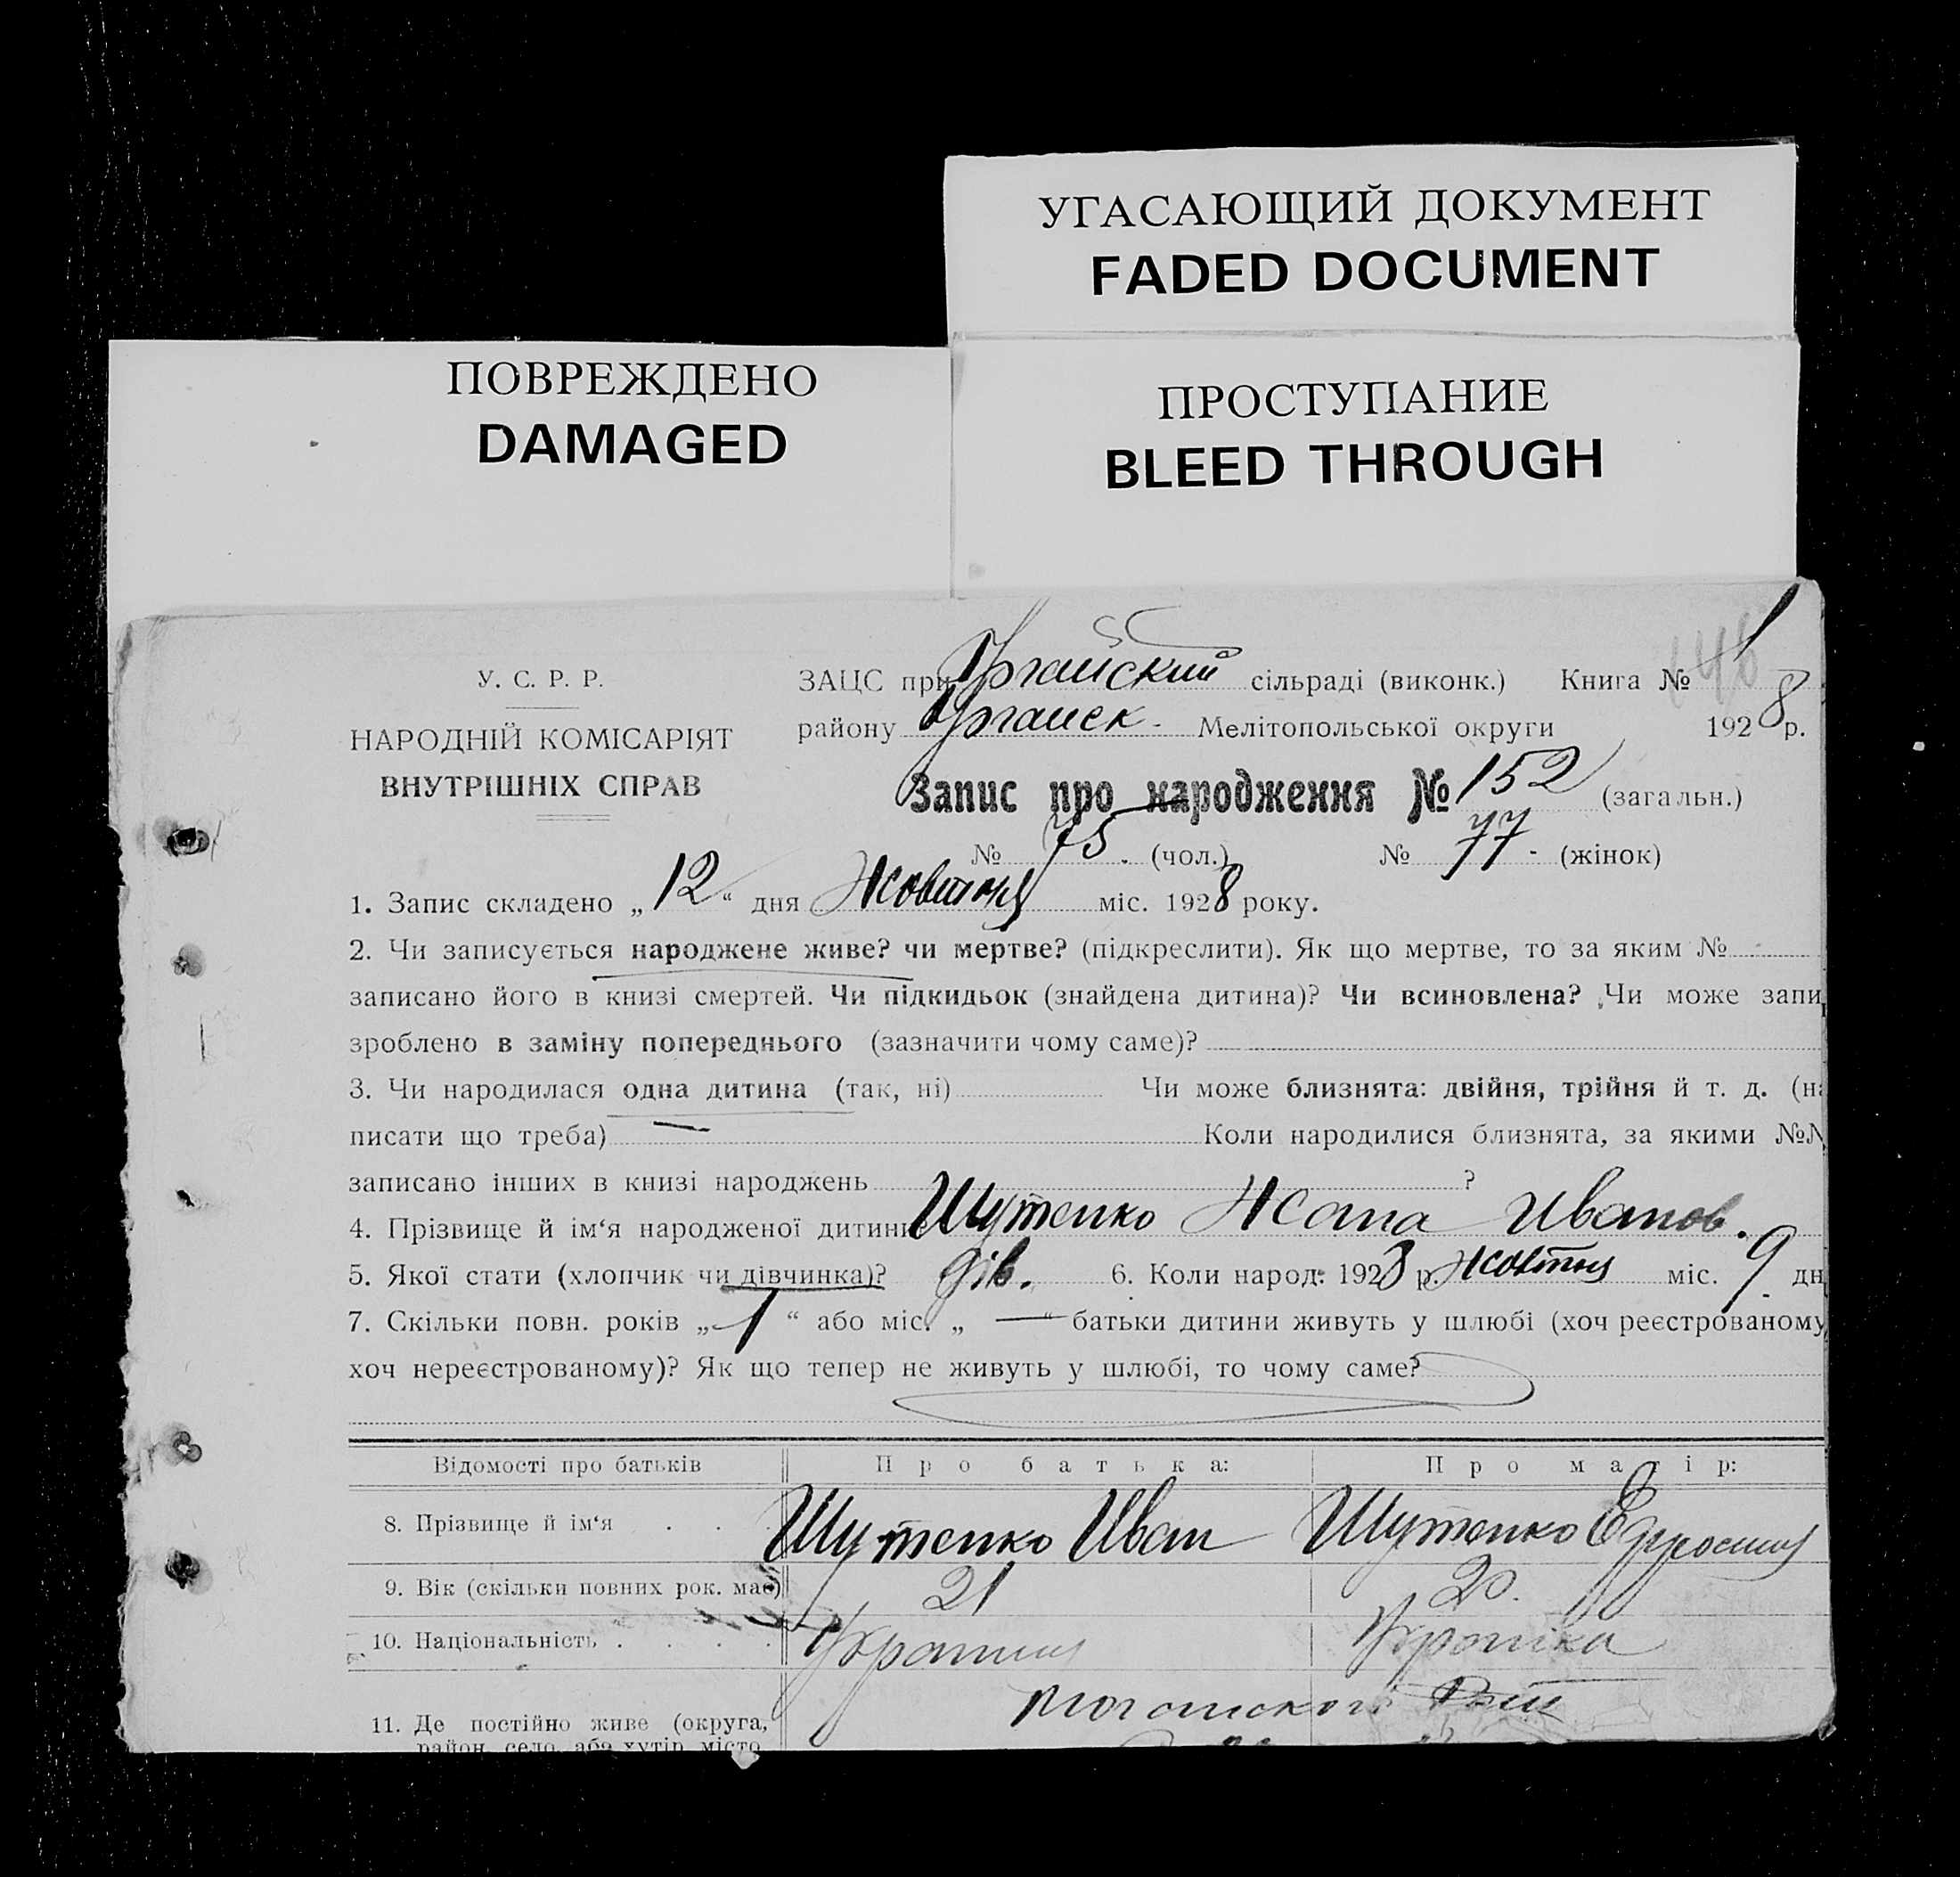 УГАСАЮЩИЙ ДОКУМЕНТ
FADED DOCUMENT
ПОВРЕЖДЕНО
DAMAGED
ПРОСТУПАНИЕ
BLEED THROUGH
У. С. Р. Р.
НАРОДНІЙ КОМІСАРІЯТ
ВНУТРІШНІХ СПРАВ
ЗАЦС при сільраді (виконк.) Книга №
району Мелітопольської округи 1928 р.
Запис про народження № 152 (загальн.)
№ 75. (чол.) № 77 - (жінок)
1. Запис складено „12“ дня Жовтня міс. 1928 року.
2. Чи записується народжене живе? чи мертве? (підкреслити). Як що мертве, то за яким №
записано його в книзі смертей. Чи підкидьок (знайдена дитина)? Чи всиновлена? Чи може запи
зроблено в заміну попереднього (зазначити чому саме)?
3. Чи народилася одна дитина (так, ні) Чи може близнята: двійня, трійня й т. д. (на
писати що треба) — Коли народилися близнята, за якими №№
записано інших в книзі народжень ?
4. Прізвище й ім‘я народженої дитини Шутенко Иванов.
5. Якої стати (хлопчик чи дівчинка)? дів. 6. Коли народ: 1928 р. жовтня міс. 9 дн
7. Скільки повн. років „1“ або міс. „—“ батьки дитини живуть у шлюбі (хоч реєстрованому
хоч нереєстрованому)? Як що тепер не живуть у шлюбі, то чому саме?
Відомості про батьків Про батька: Про матір:
8. Прізвище й ім‘я . . . Шутенко Иван Шутенко
9. Вік (скільки повних рок. має) 21 20.
10. Національність . . . .
11. Де постійно живе (округа,
район, село, або хутір, місто